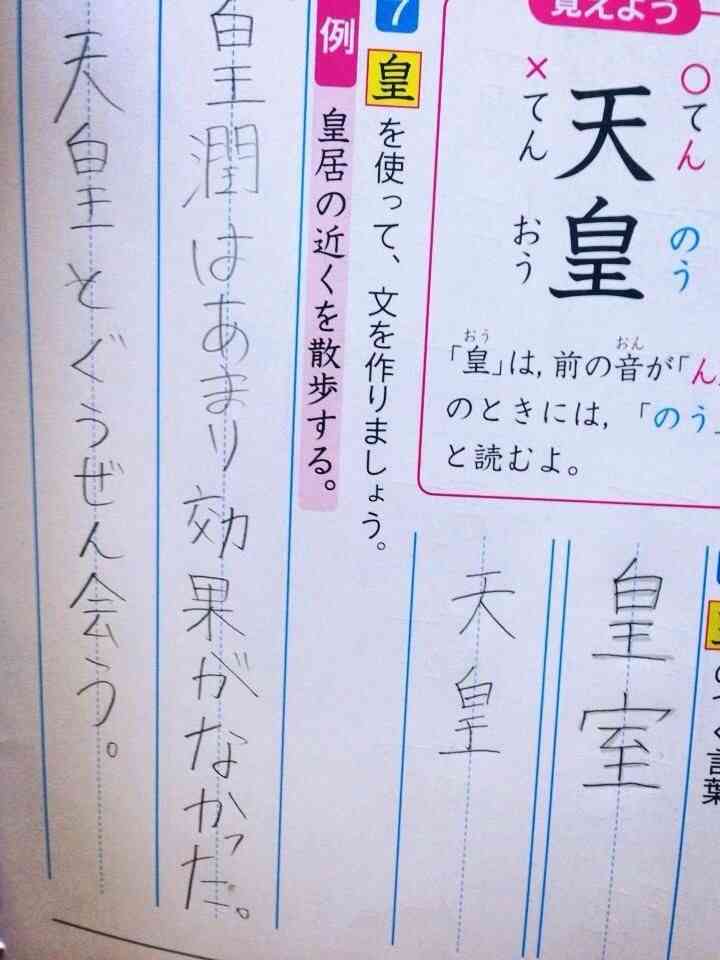 覚えよう
○てんのう
天皇
×てんおう
「皇」は,前の音が「ん
おう
おん
のときには,「のう」
と読むよ。
のつく言葉
皇室
天皇
7
皇を使って、文を作りましょう。
例
皇居の近くを散歩する。
皇潤はあまり効果がなかった。
天皇とぐうぜん会う。